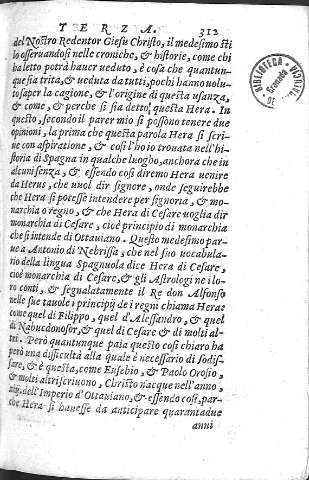 TERZA. 312
del Nostro Redentor Giesu Christo, il medesimo sti
lo osseruandosi nelle croniche, & historie, come chi
ha letto potrà hauer ueduto, è cosa che quantun-
que sia trita, & ueduta da tutti, pochi hanno uolu-
to saper la cagione, & l'origine di questa usanza,
& come, & perche si sia detto questa Hera. In
questo, secondo il parer mio si possono tenere due
opinioni, la prima che questa parola Hera si scri-
ue con aspiratione, & cosi l'ho io trouata nell'hi-
storia di Spagna in qualche luogho, anchora che in
alcuni senza, & essendo cosi diremo Hera uenire
da Herus, che uuol dir signore, onde seguirebbe
che Hera si potesse intendere per signoria, & mo-
narchia o regno, & che Hera di Cesare uoglia dir
monarchia di Cesare, cioè principio di monarchia
che si intende di Ottauiano. Questo medesimo par-
ue a Antonio di Nebrissa, che nel suo uocabula-
rio della lingua Spagnuola dice Hera di Cesare,
cioè monarchia di Cesare, & gli Astrologi ne i lo-
ro conti, & segnalatamente il Re don Alfonso
nelle sue tauole, principij de i regni chiama Hera:
come quel di Filippo, quel d'Alessandro, & quel
di Nabucdonosor, & quel di Cesare & di molti al-
tri. Però quantunque paia questo cosi chiaro ha
però una difficultà alla quale è necessario di sodis-
fare, & è questa, come Eusebio, & Paolo Orosio,
& molti altri scriuono, Christo nacque nell'anno,
dell'Imperio d'Ottauiano, & essendo cosi, par-
che Hera si hauesse da anticipare quarantadue
anni
BIBLIOTECA
Granada